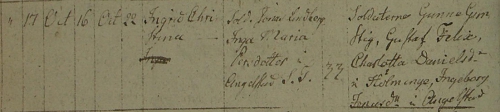 " 17 Oct 16 Oct 22 Ingrid Chri
stina
Sold. Jonas Lindberg
Inga Maria
Persdotter i
Engelstad S. T.
22
Soldaterne Gunnar
Stig, Gustaf Felix,
Charlotta Danielsdr
i Holmunga, Ingeborg
Jonsdr i Engelstad